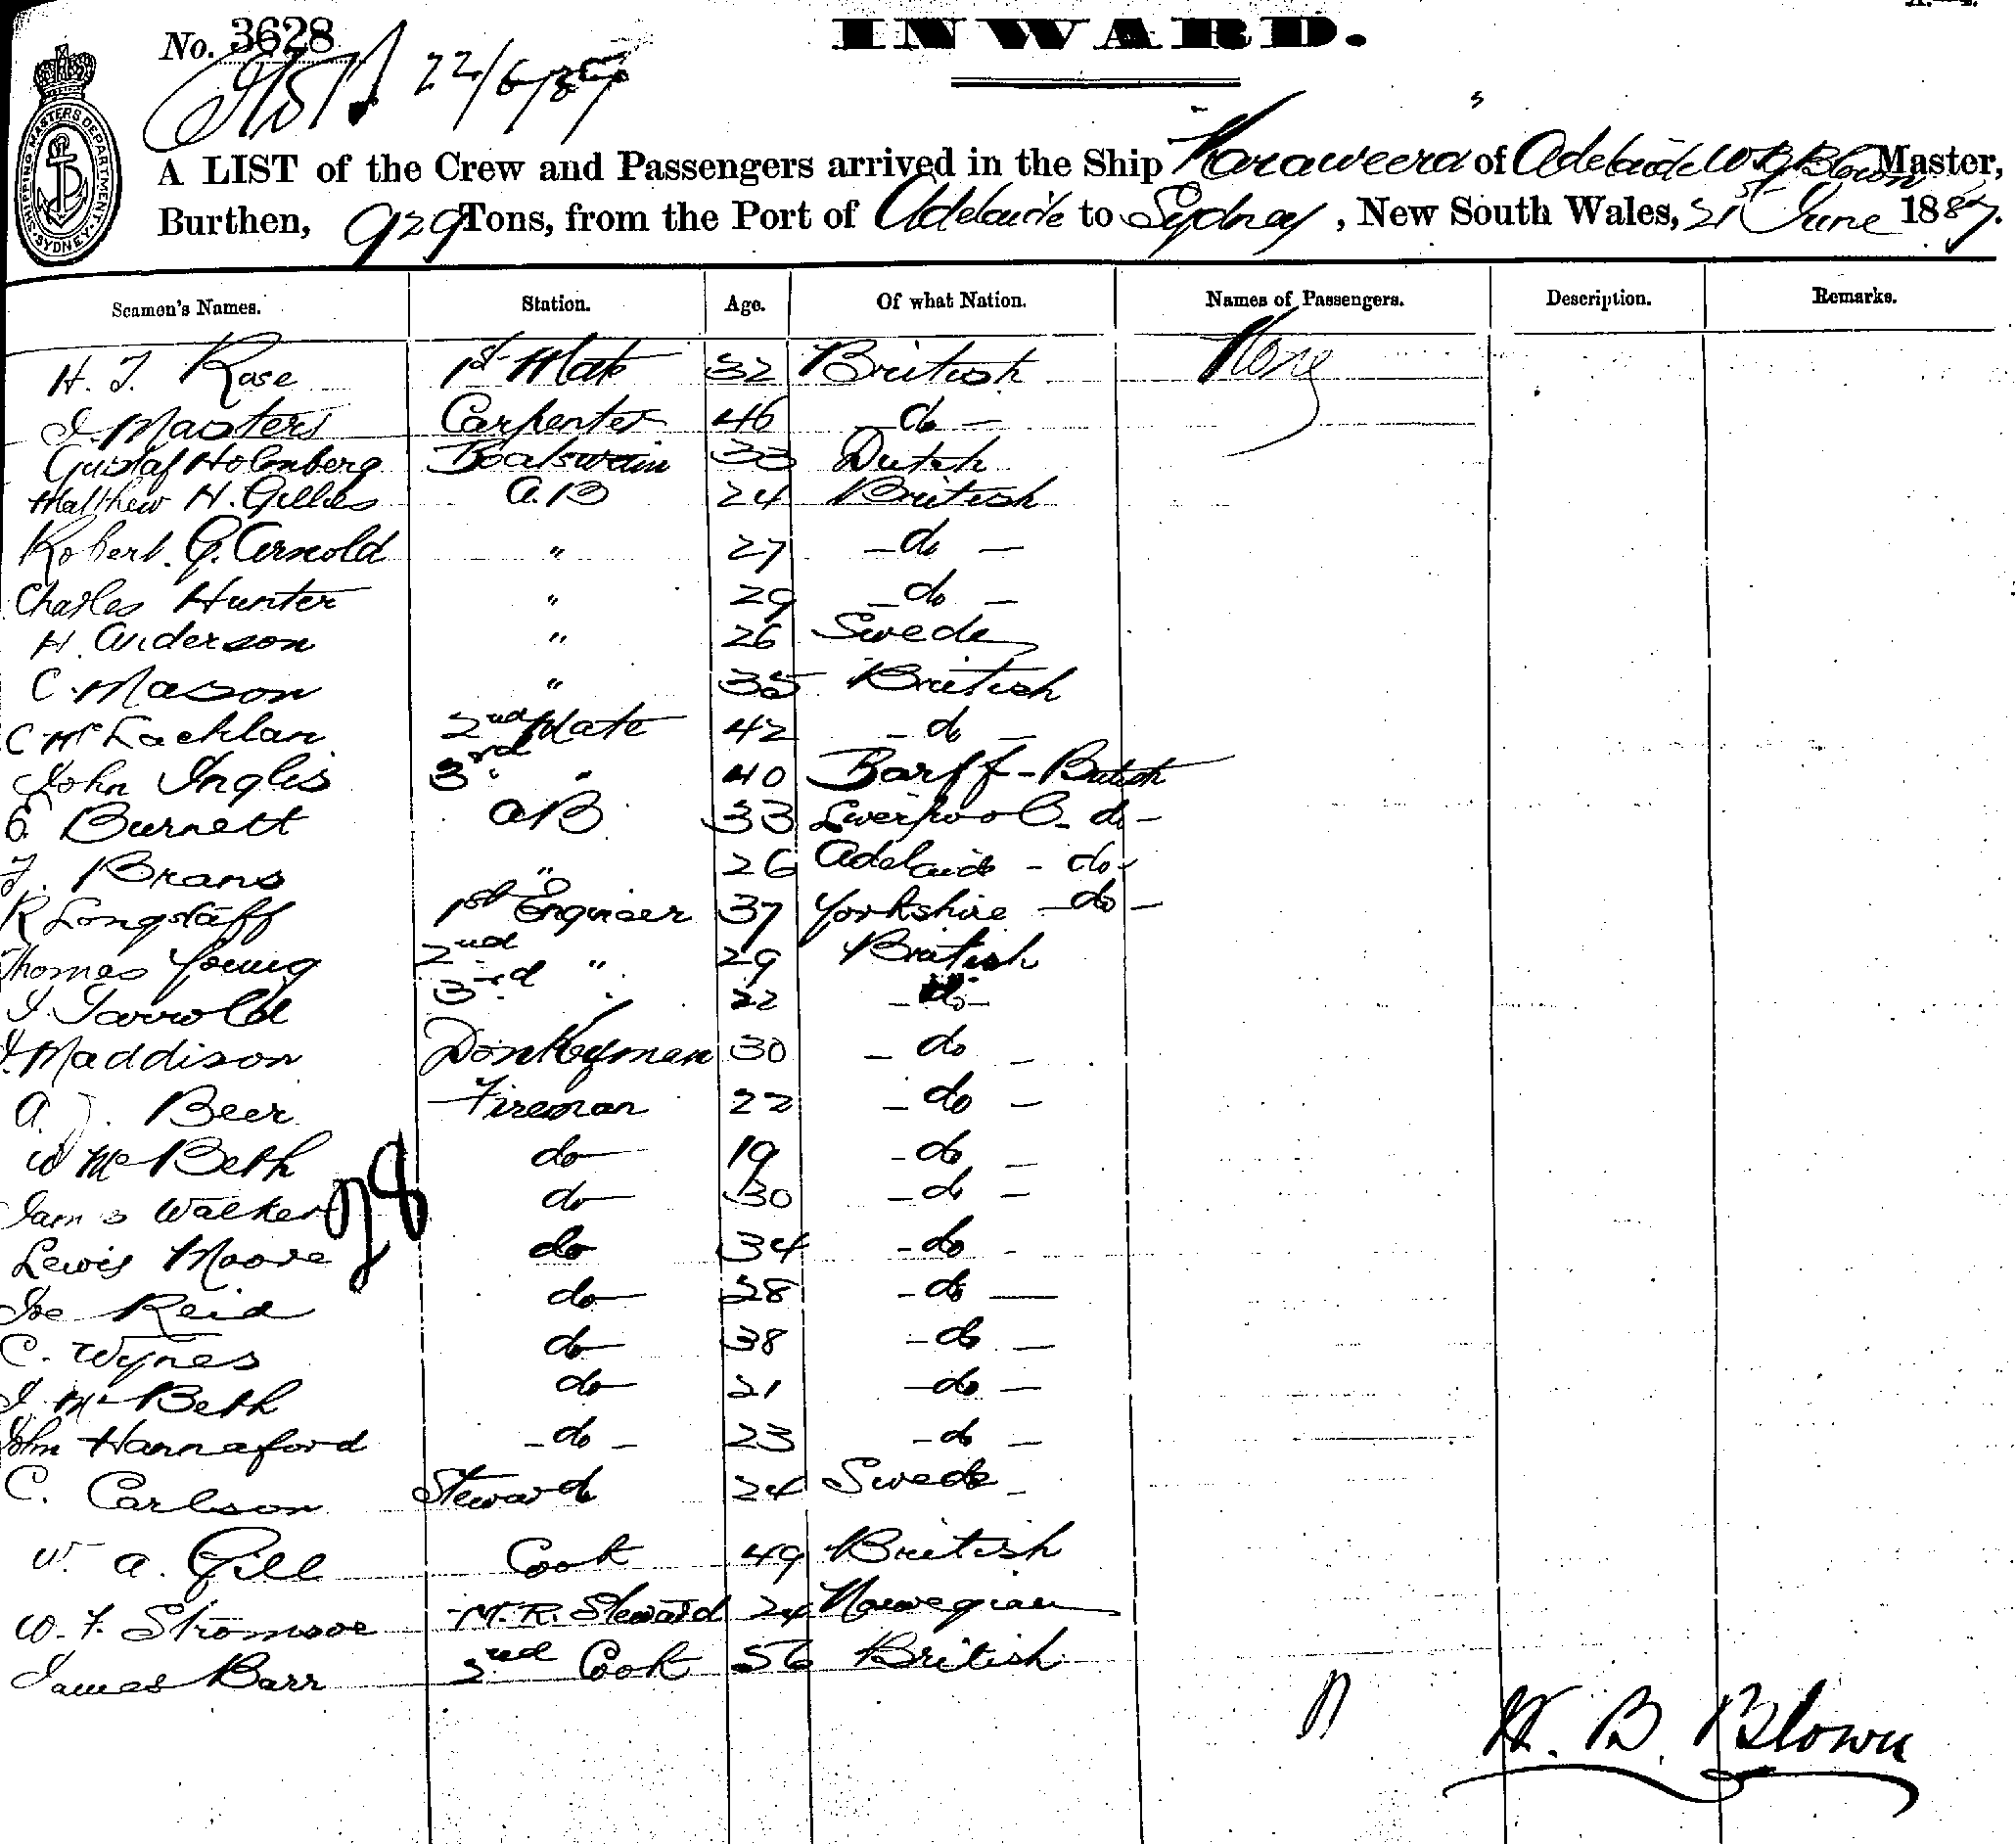 No. 3628
22/6/87
INWARD.
SHIPPING MASTERS DEPARTMENT SYDNEY
A LIST of the Crew and Passengers arrived in the Ship Karaweera of Adelaide W. B. Blown Master,
Burthen, 929 Tons, from the Port of Adelaide to Sydney, New South Wales, 21st June 1887.
Seamen's Names. Station. Age. Of what Nation. Names of Passengers. Description. Remarks.
H. J. Rose 1st Mate 32 British None
J. Masters Carpenter 46 - do -
Gustaf Holmberg Boatswain 33 Dutch
Matthew H. Gillies A.B 24 British
Robert G. Arnold " 27 - do -
Charles Hunter " 29 - do -
H. Anderson " 26 Swede
C. Mason " 35 British
C McLachlan 2nd Mate 42 - do -
John Inglis 3rd " 40 Barff - British
E. Burnett AB 33 Liverpool - do -
J. Brans " 26 Adelaide - do -
R Longstaff 1st Engineer 37 Yorkshire - do -
Thomas Young 2nd " 29 British
J. Jarrold 3rd " 22 - do -
J. Maddison Donkeyman 30 - do -
A. J. Beer Fireman 22 - do -
W McBeth do 19 - do -
James Walker do 30 - do -
28
Lewis Moore do 34 - do -
Joe Reid do 28 - do -
C. Wynes do 38 - do -
J McBeth do 21 - do -
John Hannaford - do - 23 - do -
C. Carlson Steward 24 Swede -
W. A. Gill Cook 49 British
W. F. Stromsoe M.R. Steward 24 Norwegian
James Barr 2nd Cook 56 British
W. B. Blown